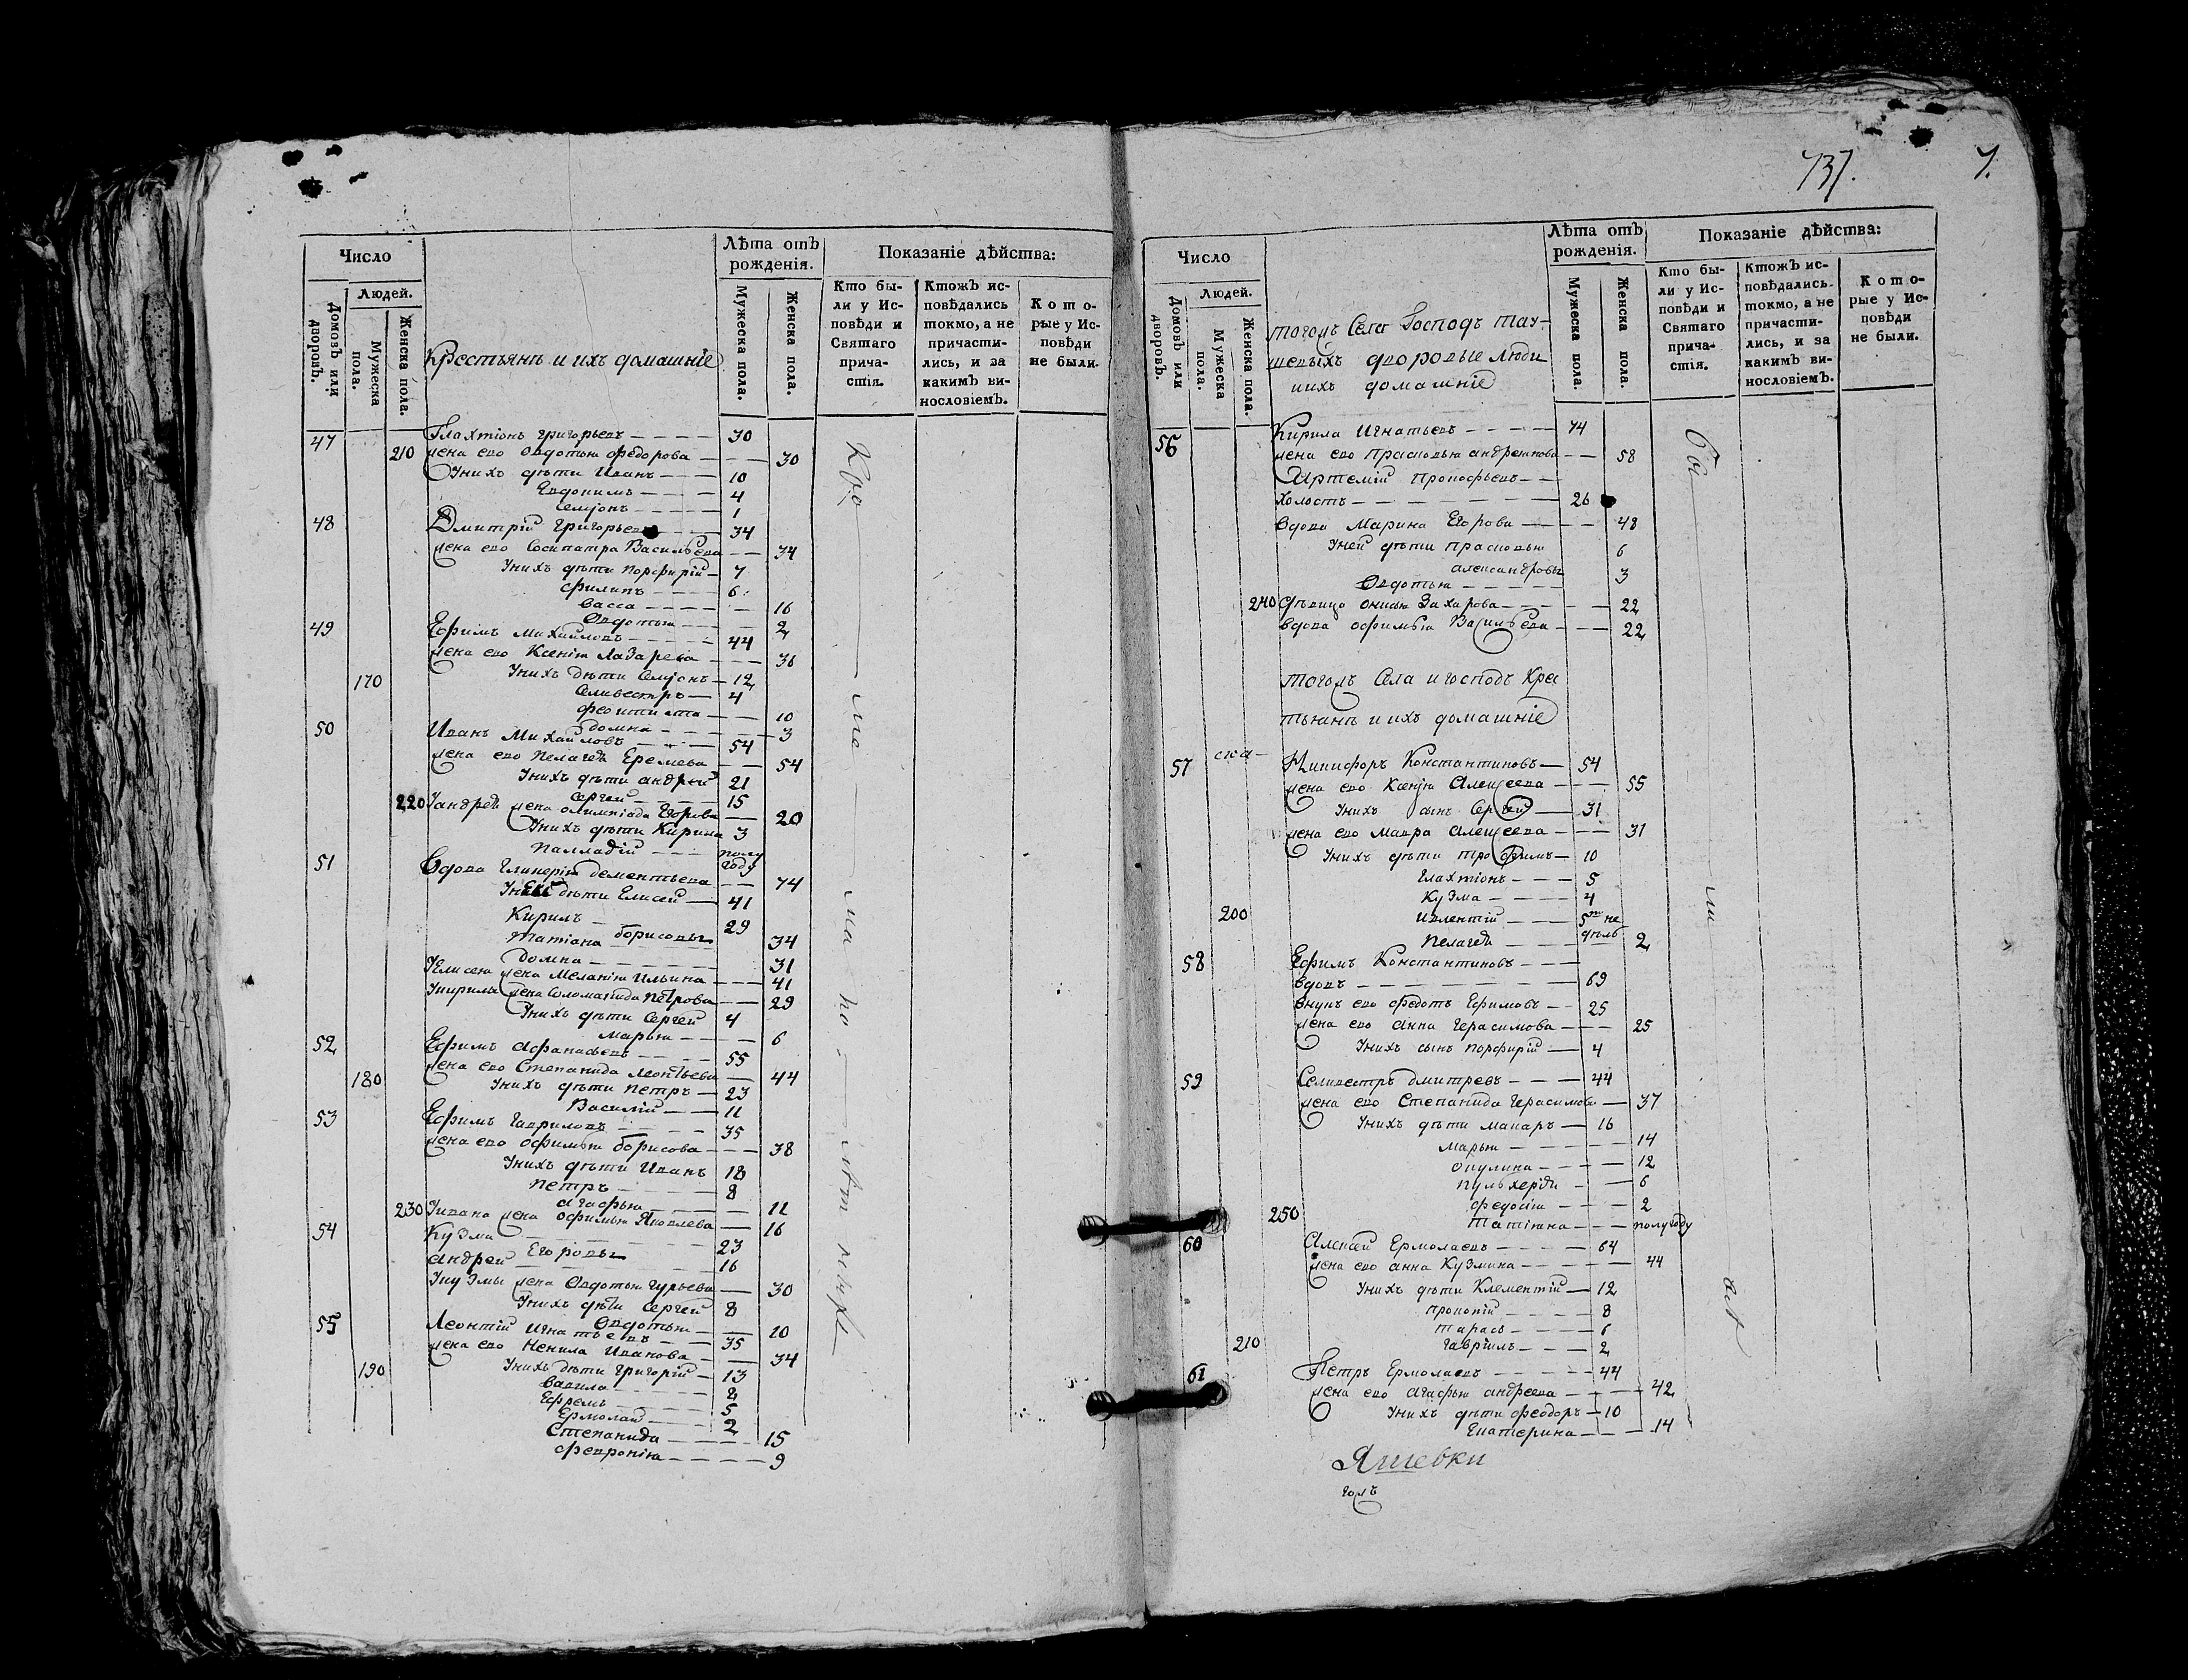 737. 7.
Число
Людей.
Домовъ или дворовъ.
Мужеска пола.
Женска пола.
Крестьянъ и ихъ домашніе
Лѣта отъ рожденія.
Мужеска пола.
Женска пола.
Показаніе дѣйства:
Кто бы-
ли у Ис-
повѣди и
Святаго
прича-
стія.
Ктожъ ис-
повѣдались
токмо, а не
причасти-
лись, и за
какимъ ви-
нословіемъ.
Кото-
рые у Ис-
повѣди
не были.
47 Глахтіонъ Григорьевъ 30
210 жена ево Овдотья Федорова 30
У нихъ дѣти Иванъ 10
Евдокимъ 4
Семіонъ 1
48 Дмитрій Григорьевъ 34
жена ево Сосипатра Васильева 34
У нихъ дѣти Порфирій 7
Филипъ 6
Васса 16
Овдотья 2
49 Ефимъ Михайловъ 44
жена ево Ксенія Лазарева 36
170 У нихъ дѣти Семіонъ 12
Селивестръ 4
Феоктиста 10
Домна 3
50 Иванъ Михайловъ 54
жена ево Пелагея Еремева 54
У нихъ дѣти Андрей 21
Сергей 15
220 У Андрея жена Олимпіада Егорова 20
У нихъ дѣти Кирила 3
Палладій полу году
51 Вдова Гликерія Дементьева 74
У ней дѣти Елисей 41
Кирилъ 29
Татіана Борисовы 34
Домна 31
У Елисея жена Меланія Ильина 41
У Кирилы жена Соломанида Петрова 29
У нихъ дѣти Сергей 4
Марья 6
52 Ефимъ Афанасьевъ 55
жена ево Степанида Леонтьева 44
180 У нихъ дѣти Петръ 23
Василій 11
53 Ефимъ Гавриловъ 35
жена ево Офимья Борисова 38
У нихъ дѣти Иванъ 18
Петръ 8
Агафья 11
230 У Ивана жена Офимья Яковлева 16
54 Кузма 23
Андрей Егоровы 16
У Кузмы жена Овдотья Гурьева 30
У нихъ дѣти Сергей 8
Овдотья 10
55 Леонтій Игнатьевъ 35
жена ево Ненила Иванова 34
190 У нихъ дѣти Григорій 13
Вавила 8
Ефремъ 5
Ермолай 2
Степанида 15
Февронія 9
Число
Людей.
Домовъ или дворовъ.
Мужеска пола.
Женска пола.
Тогожъ Села Господъ Тау-
шевыхъ дворовые люди
и ихъ домашніе
Лѣта отъ рожденія.
Мужеска пола.
Женска пола.
Показаніе дѣйства:
Кто бы-
ли у Ис-
повѣди и
Святаго
прича-
стія.
Ктожъ ис-
повѣдались
токмо, а не
причасти-
лись, и за
какимъ ви-
нословіемъ.
Кото-
рые у Ис-
повѣди
не были.
56 Кирила Игнатьевъ 74
жена ево Прасковья Андреянова 58
Артемій Прокофьевъ
холостъ 26
Вдова Марина Егорова 48
У ней дѣти Прасковья 6
Александровы
Овдотья 3
240 Дѣвица Онисья Захарова 22
Вдова Офимья Васильева 22
Тогожъ Села и господъ Крес
тьянъ и ихъ домашніе
57 Никифоръ Константиновъ 54
жена ево Ксенія Алексеева 55
У нихъ сынъ Сергей 31
жена ево Мавра Алексеева 31
У нихъ дѣти Трофимъ 10
Глахтіонъ 5
Кузма 4
200 Ивлентій 5ти недѣль
Пелагея 2
58 Ефимъ Константиновъ
вдовъ 69
внукъ ево Федотъ Ефимовъ 25
жена ево Анна Герасимова 25
У нихъ сынъ Порфирій 4
59 Селивестръ Дмитревъ 44
жена ево Степанида Герасимова 37
У нихъ дѣти Макаръ 16
Марья 14
Окулина 12
Пульхерія 6
Федосія 2
250 Татіяна полугоду
60 Алексей Ермолаевъ 64
жена ево Анна Кузмина 44
У нихъ дѣти Клементій 12
Прокопій 8
Тарасъ 6
210 Гаврилъ 2
61 Петръ Ермолаевъ 44
жена ево Агафья Андреева 42
У нихъ дѣти Феодоръ 10
Екатерина 14
Яшевки